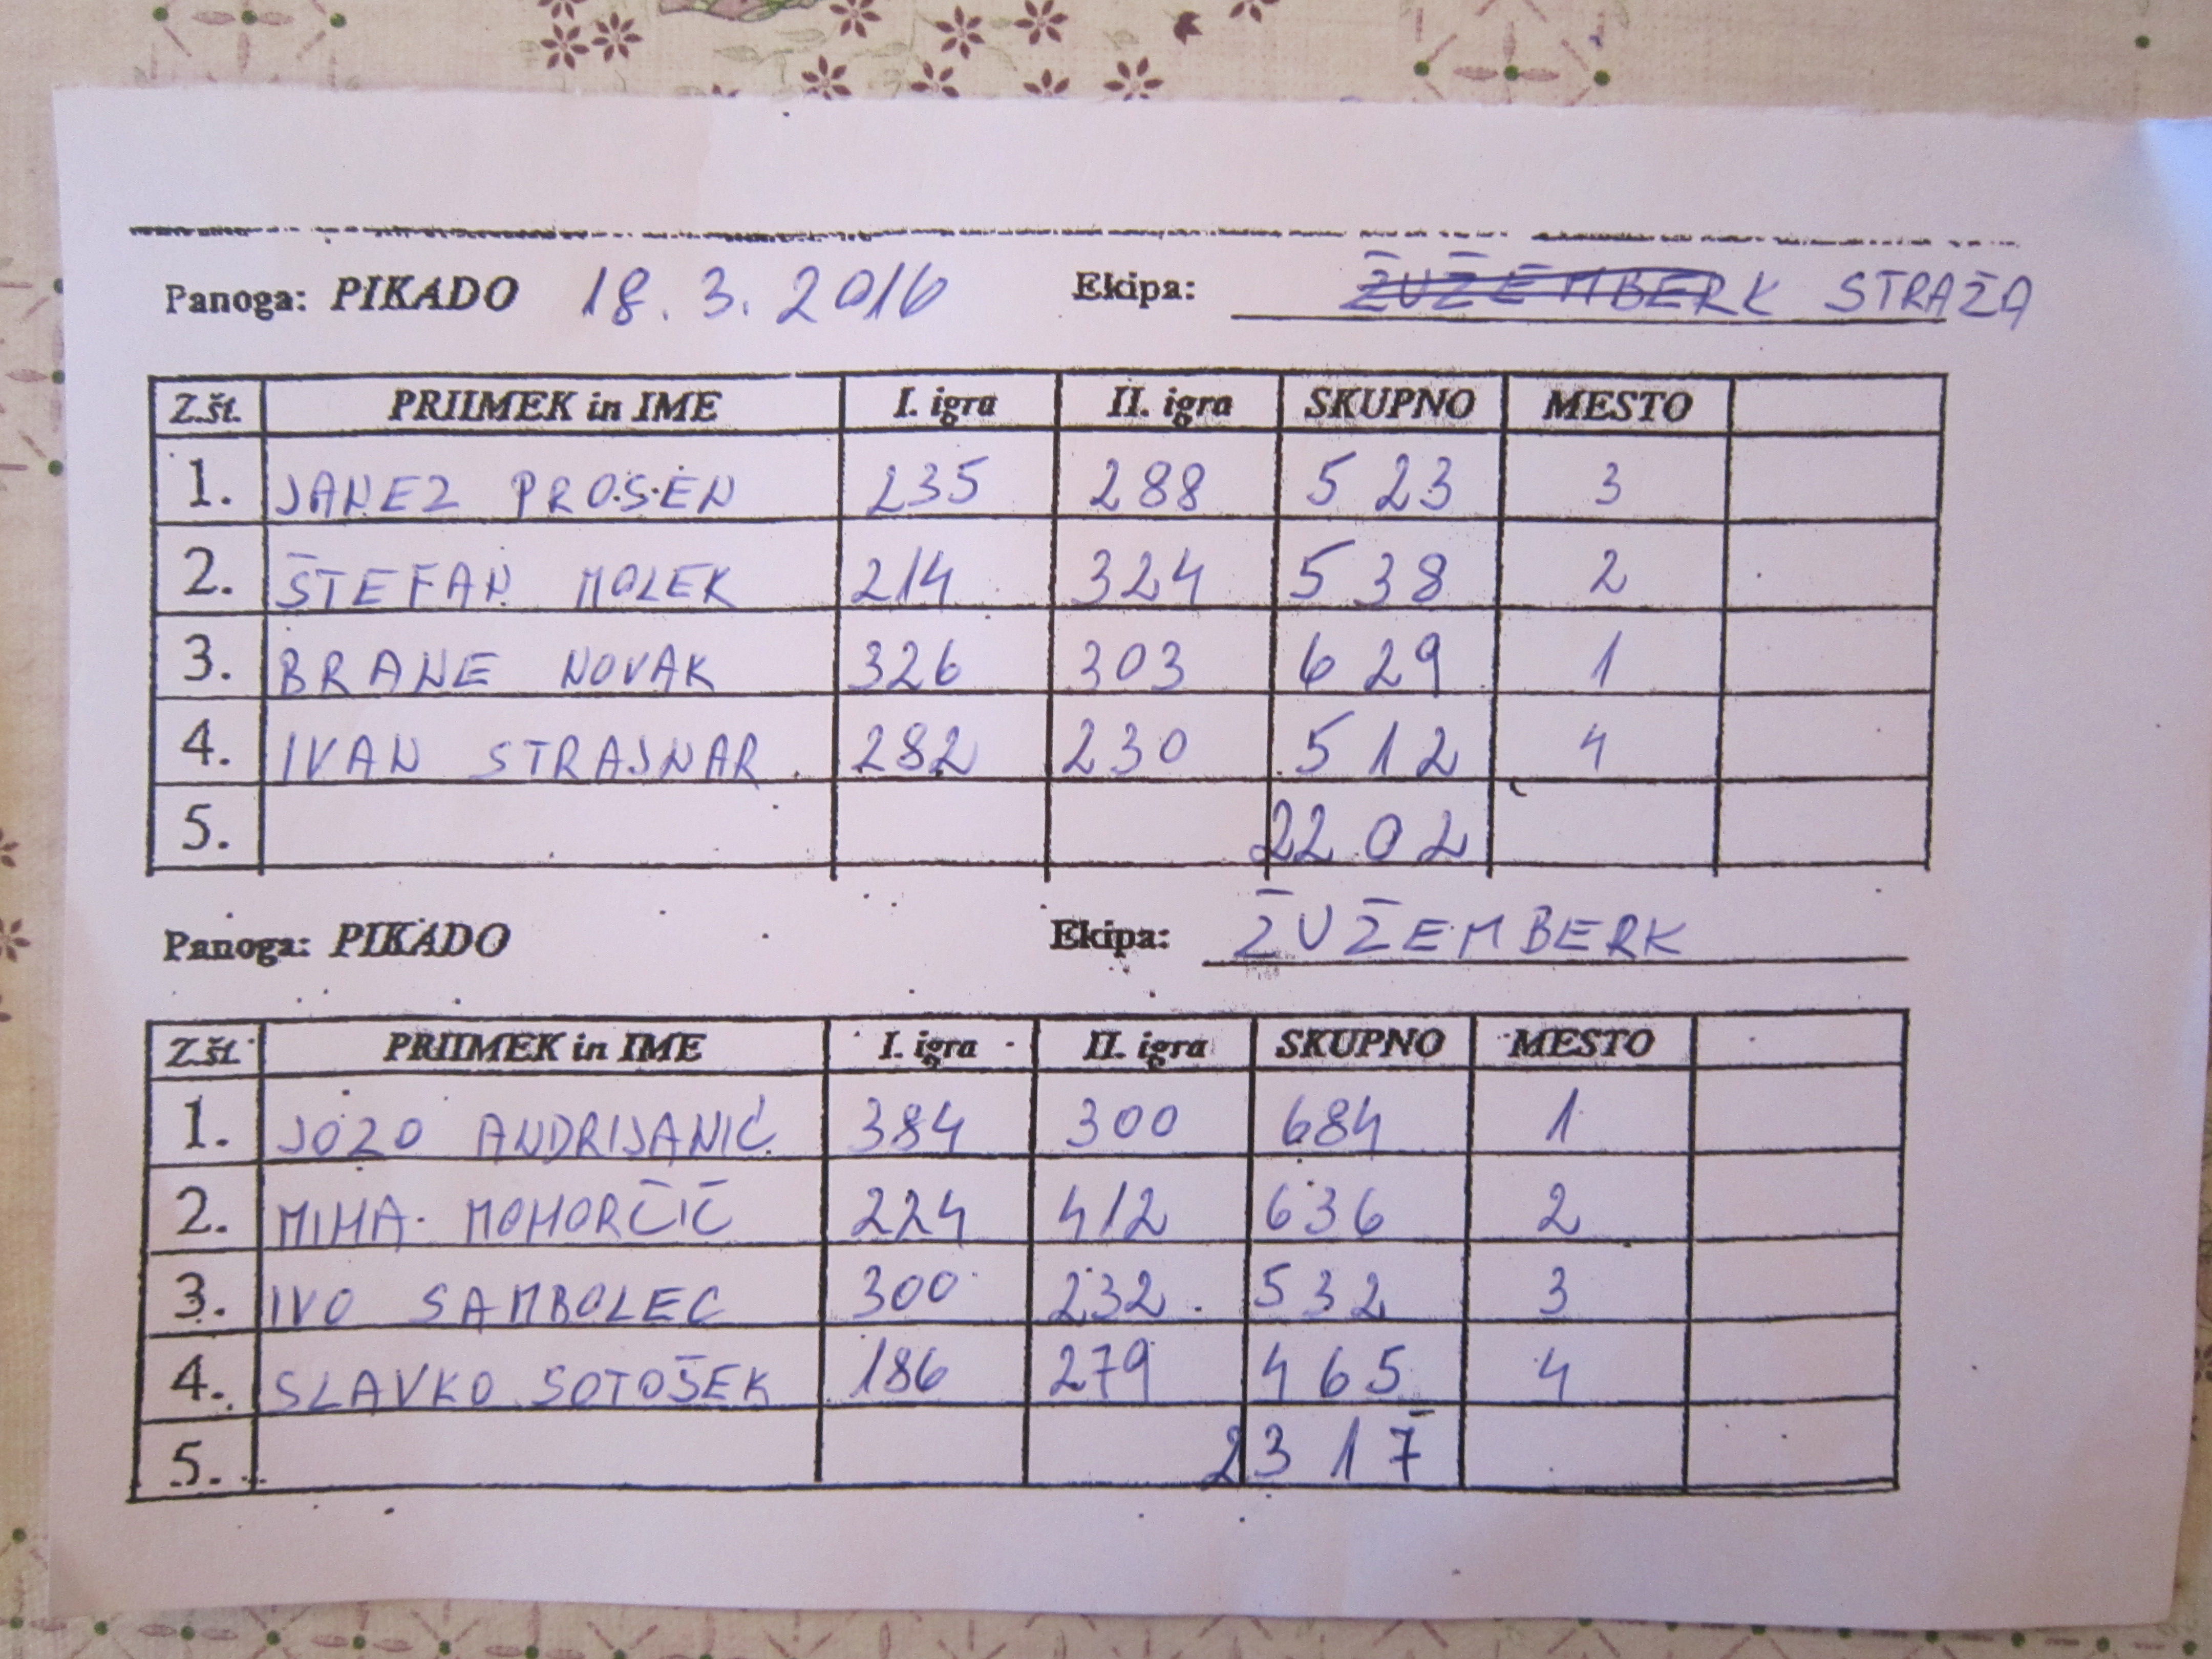 Panoga: PIKADO 18. 3. 2016 Ekipa: ŽUŽEMBERK STRAŽA
Z.št. PRIIMEK in IME I. igra II. igra SKUPNO MESTO
1. JANEZ PROSEN 235 288 523 3
2. ŠTEFAN MOLEK 214 324 538 2
3. BRANE NOVAK 326 303 629 1
4. IVAN STRAJNAR 282 230 512 4
5. 2202
Panoga: PIKADO Ekipa: ŽUŽEMBERK
Z.št. PRIIMEK in IME I. igra II. igra SKUPNO MESTO
1. JOZO ANDRIJANIĆ 384 300 684 1
2. MIHA MOHORČIČ 224 412 636 2
3. IVO SAMBOLEC 300 232 532 3
4. SLAVKO SOTOŠEK 186 279 465 4
5. 2317